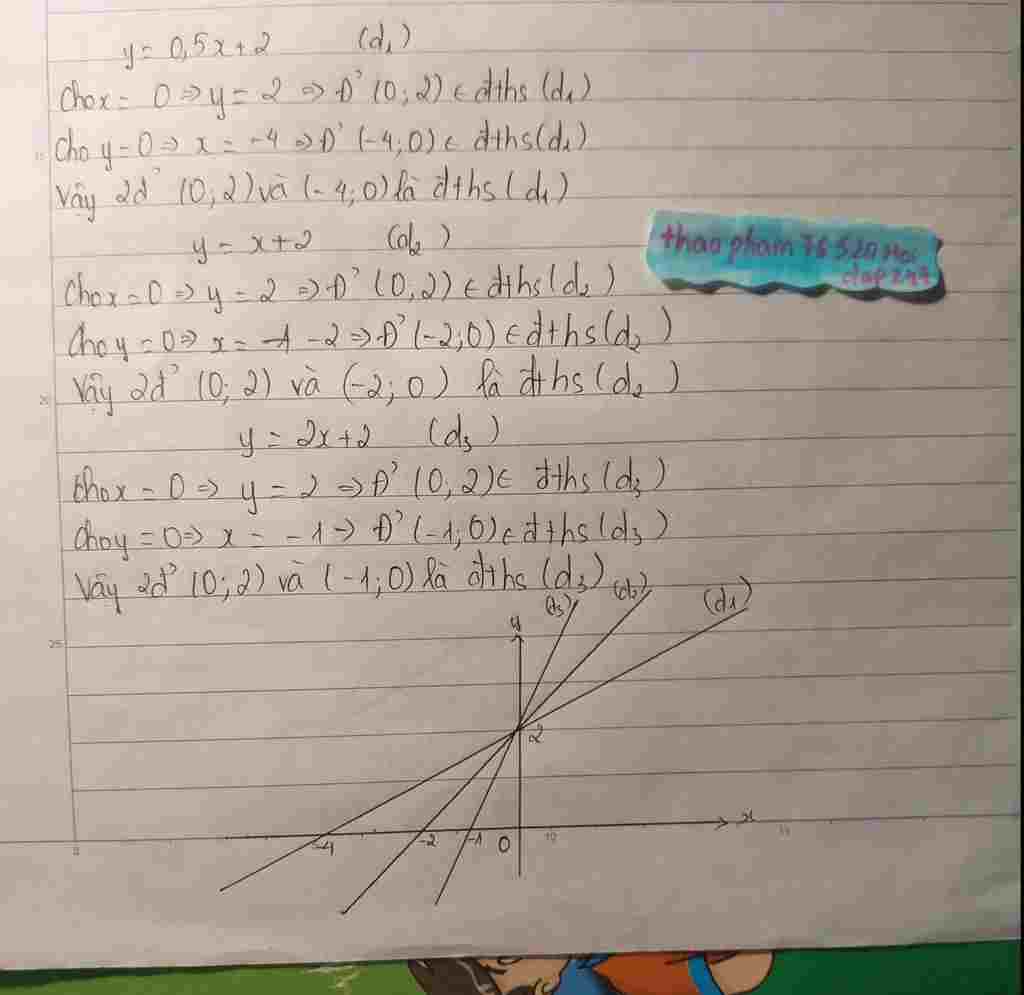 y = 0,5x + 2 (d1)
Cho x = 0 => y = 2 => Đ' (0; 2) ∈ đths (d1)
Cho y = 0 => x = -4 => Đ' (-4; 0) ∈ đths (d1)
Vậy 2đ' (0; 2) và (-4; 0) là đths (d1)
y = x + 2 (d2)
thao pham
Cho x = 0 => y = 2 => Đ' (0, 2) ∈ đths (d2)
Cho y = 0 => x = -1 - 2 => Đ' (-2; 0) ∈ đths (d2)
Vậy 2đ' (0; 2) và (-2; 0) là đths (d2)
y = 2x + 2 (d3)
Cho x = 0 => y = 2 => Đ' (0, 2) ∈ đths (d3)
Cho y = 0 => x = -1 => Đ' (-1; 0) ∈ đths (d3)
Vậy 2đ' (0; 2) và (-1; 0) là đths (d3)
(d3) (d2) (d1)
25
y
2
x
-4 -2 -1 0